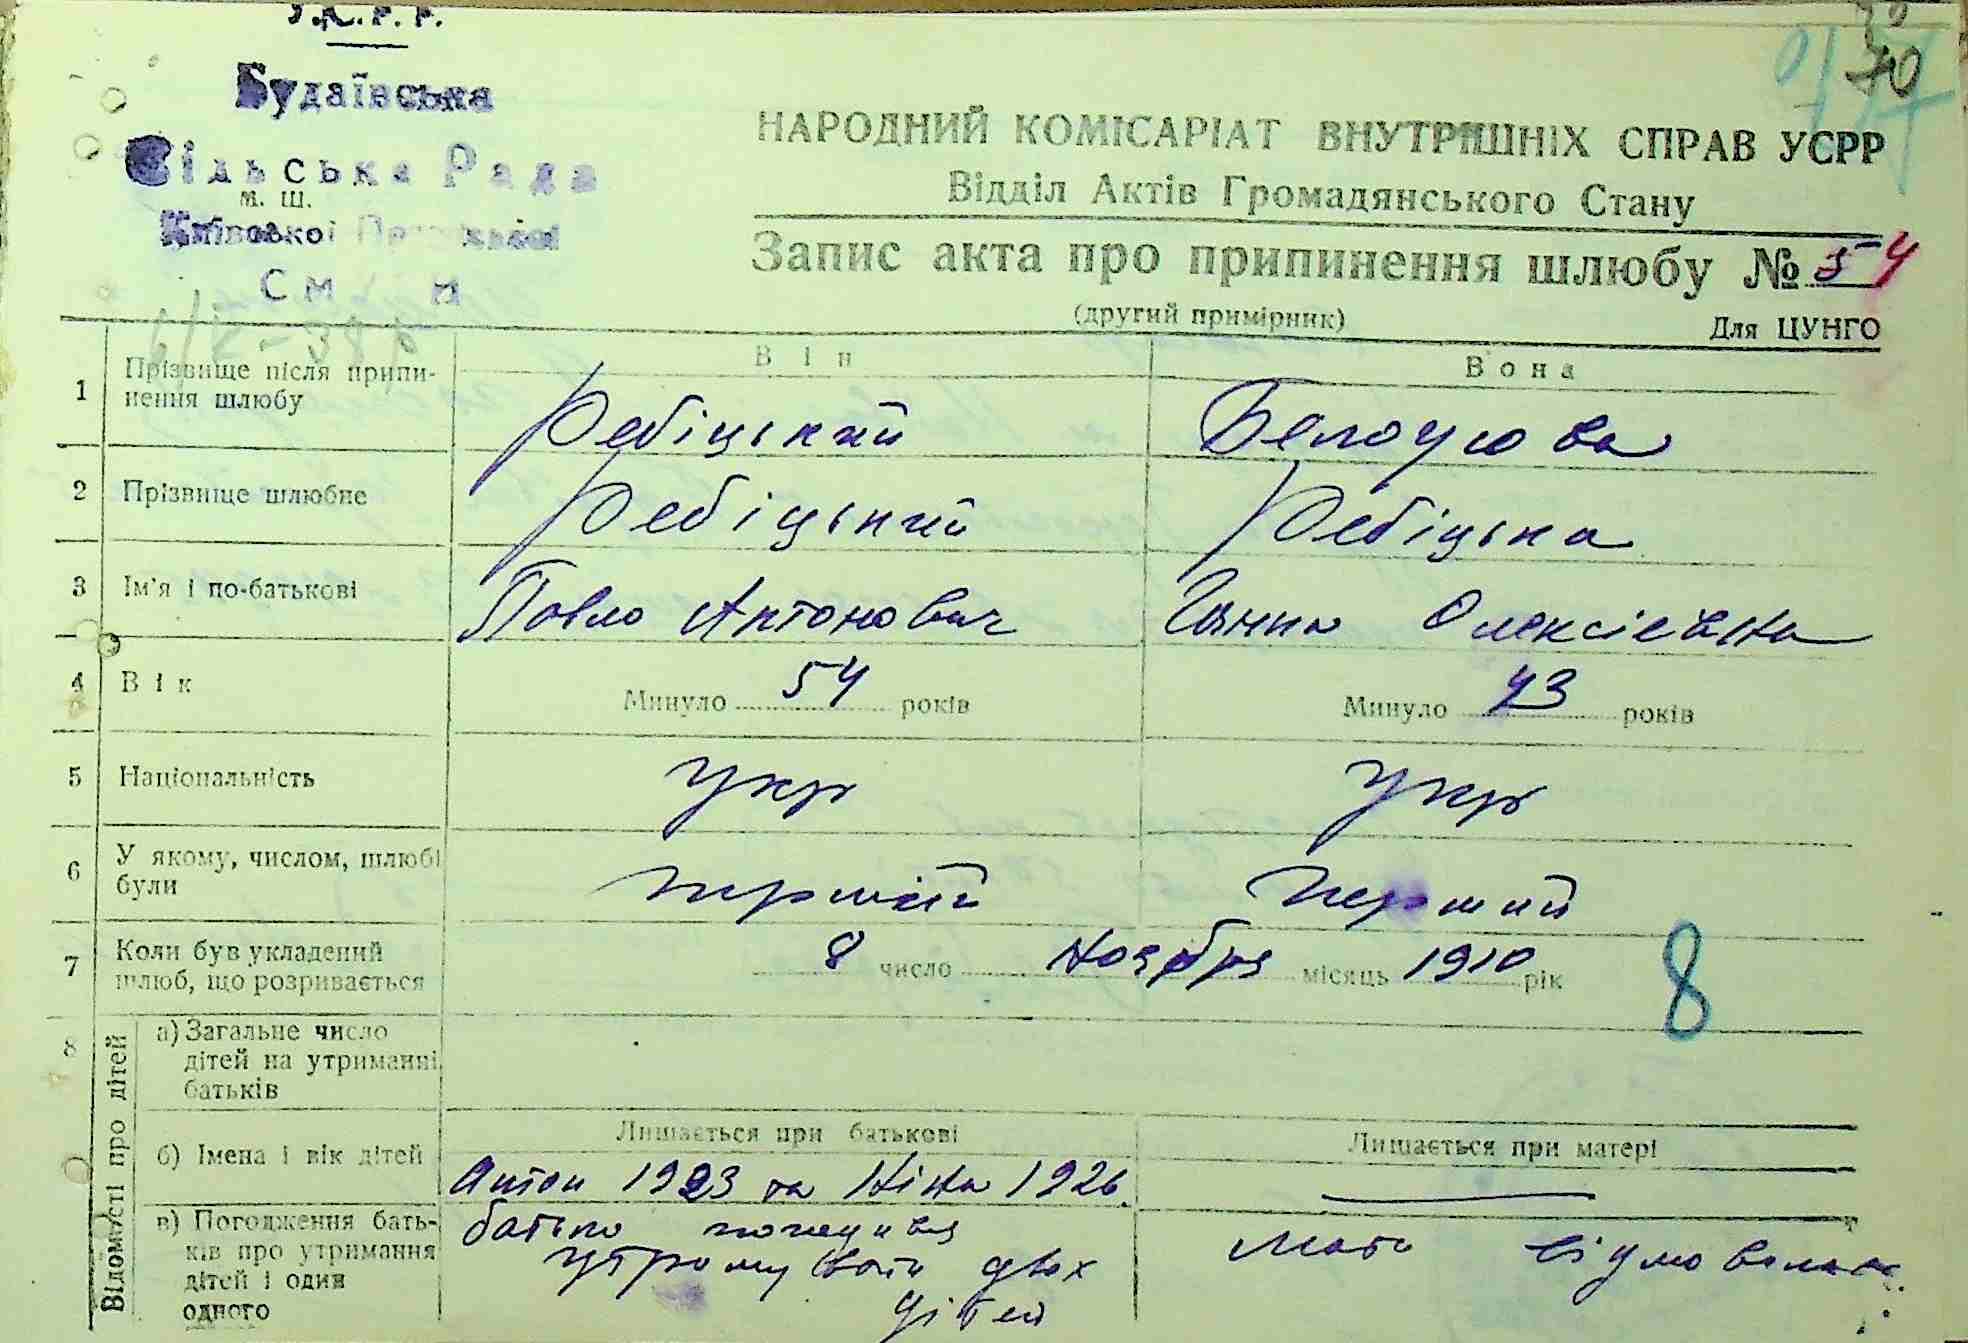 У.С.Р.Р.
Будаївська
Сільська Рада
м. ш.
Київської
70
НАРОДНИЙ КОМІСАРІАТ ВНУТРІШНІХ СПРАВ УСРР
Відділ Актів Громадянського Стану
Запис акта про припинення шлюбу № 54
(другий примірник)
Для ЦУНГО
Він Вона
1 Прізвище після припи-
нення шлюбу
Ребіцький Белоусова
2 Прізвище шлюбне Ребіцький Ребіцька
3 Ім'я і по-батькові Павло Антонович Ганна Олексієвна
4 Вік Минуло 54 років Минуло 43 років
5 Національність укр укр
6 У якому, числом, шлюбі
були
першій перший
7 Коли був укладений
шлюб, що розривається
8 число ноября місяць 1910 рік
8
8 Відомості про дітей
а) Загальне число
дітей на утриманні
батьків
Лишається при батькові Лишається при матері
б) Імена і вік дітей
Антон 1923 та Ніна 1926.
в) Погодження бать-
ків про утримання
дітей і один
одного
батько
утримувати двох
дітей
Мати відмовилась